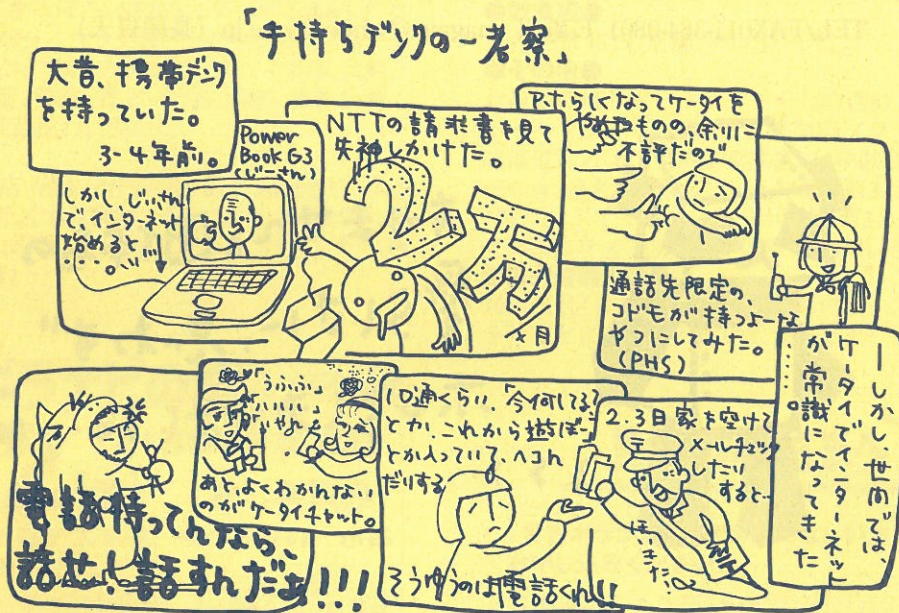 「手持ちデンワの一考察」
大昔、携帯デンワ
を持っていた。
3-4年前。
Power
Book G3
(じーさん)
しかし、じぃさん
で、インターネット
始めると
・・・・。
NTTの請求書を見て
失神しかけた。
2万
×月
アホらしくなってケータイを
やめたものの、余りに
不評だので
通話先限定の、
コドモが持つよーな
やつにしてみた。
(PHS)
ーしかし、世間では、
ケータイでインターネット
が常識になってきた
・・・・・。
2.3日家を空けて
メールチェック
したり
すると…
ほいきた!
10通くらい、「今何してる?」
とか、これから遊ぼー
とか入っていて、ヘコん
だりする
そうゆうのは電話くれ!!
「うふふ」
あと、よくわかんない
のがケータイチャット。
電話持ってんなら、
話せ!話すんだよぉ!!!